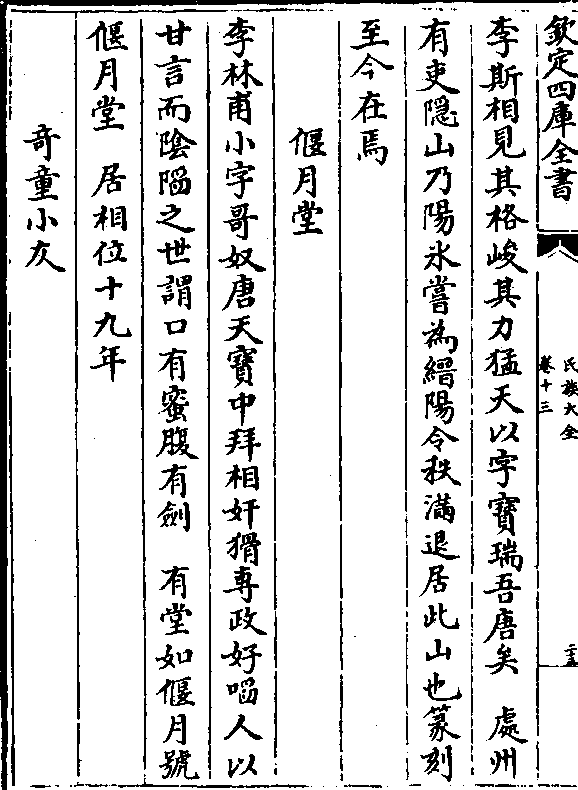 欽定四庫全書
氏族大全
卷十三
二十五
李斯相見其格峻其力猛天以字寶瑞吾唐矣　處州
有吏隠山乃陽氷嘗為縉陽令秩滿退居此山也篆刻
至今在焉
偃月堂
李林甫小字哥奴唐天寶中拜相奸猾専政好啗人以
甘言而陰陷之世謂口有蜜腹有劍　有堂如偃月號
偃月堂　居相位十九年
竒童小友